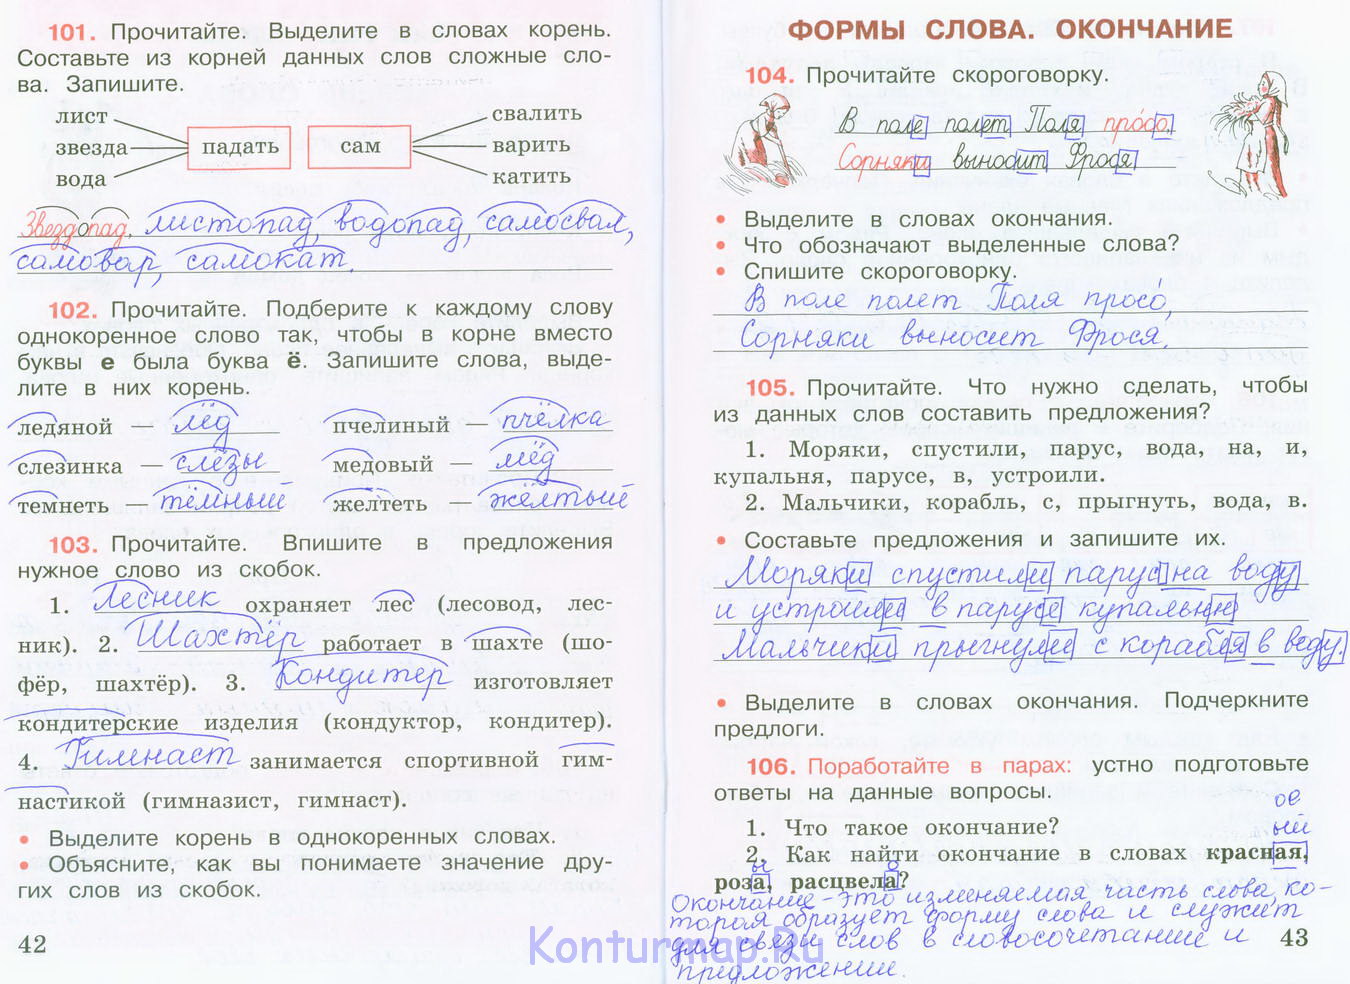 101. Прочитайте. Выделите в словах корень.
Составьте из корней данных слов сложные сло-
ва. Запишите.
лист
звезда
вода
падать
сам
свалить
варить
катить
Звездопад, листопад, водопад, самосвал,
самовар, самокат.
102. Прочитайте. Подберите к каждому слову
однокоренное слово так, чтобы в корне вместо
буквы е была буква ё. Запишите слова, выде-
лите в них корень.
ледяной — лёд пчелиный — пчёлка
слезинка — слёзы медовый — мёд
темнеть — тёмный желтеть — жёлтый
103. Прочитайте. Впишите в предложения
нужное слово из скобок.
1. Лесник охраняет лес (лесовод, лес-
ник). 2. Шахтёр работает в шахте (шо-
фёр, шахтёр). 3. Кондитер изготовляет
кондитерские изделия (кондуктор, кондитер).
4. Гимнаст занимается спортивной гим-
настикой (гимназист, гимнаст).
• Выделите корень в однокоренных словах.
• Объясните, как вы понимаете значение дру-
гих слов из скобок.
42
ФОРМЫ СЛОВА. ОКОНЧАНИЕ
104. Прочитайте скороговорку.
В поле полет Поля просо,
Сорняки выносит Фрося.
• Выделите в словах окончания.
• Что обозначают выделенные слова?
• Спишите скороговорку.
В поле полет Поля просо,
Сорняки выносит Фрося.
105. Прочитайте. Что нужно сделать, чтобы
из данных слов составить предложения?
1. Моряки, спустили, парус, вода, на, и,
купальня, парусе, в, устроили.
2. Мальчики, корабль, с, прыгнуть, вода, в.
• Составьте предложения и запишите их.
Моряки спустили парус на воду
и устроили в парусе купальню
Мальчики прыгнули с корабля в воду.
• Выделите в словах окончания. Подчеркните
предлоги.
106. Поработайте в парах: устно подготовьте
ответы на данные вопросы.
ое
1. Что такое окончание? ый
2. Как найти окончание в словах красная,
роза, расцвела?
Окончание - это изменяемая часть слова, ко-
торая образует форму слова и служит
для связи слов в словосочетании и
предложении.
43
Konturmap.Ru